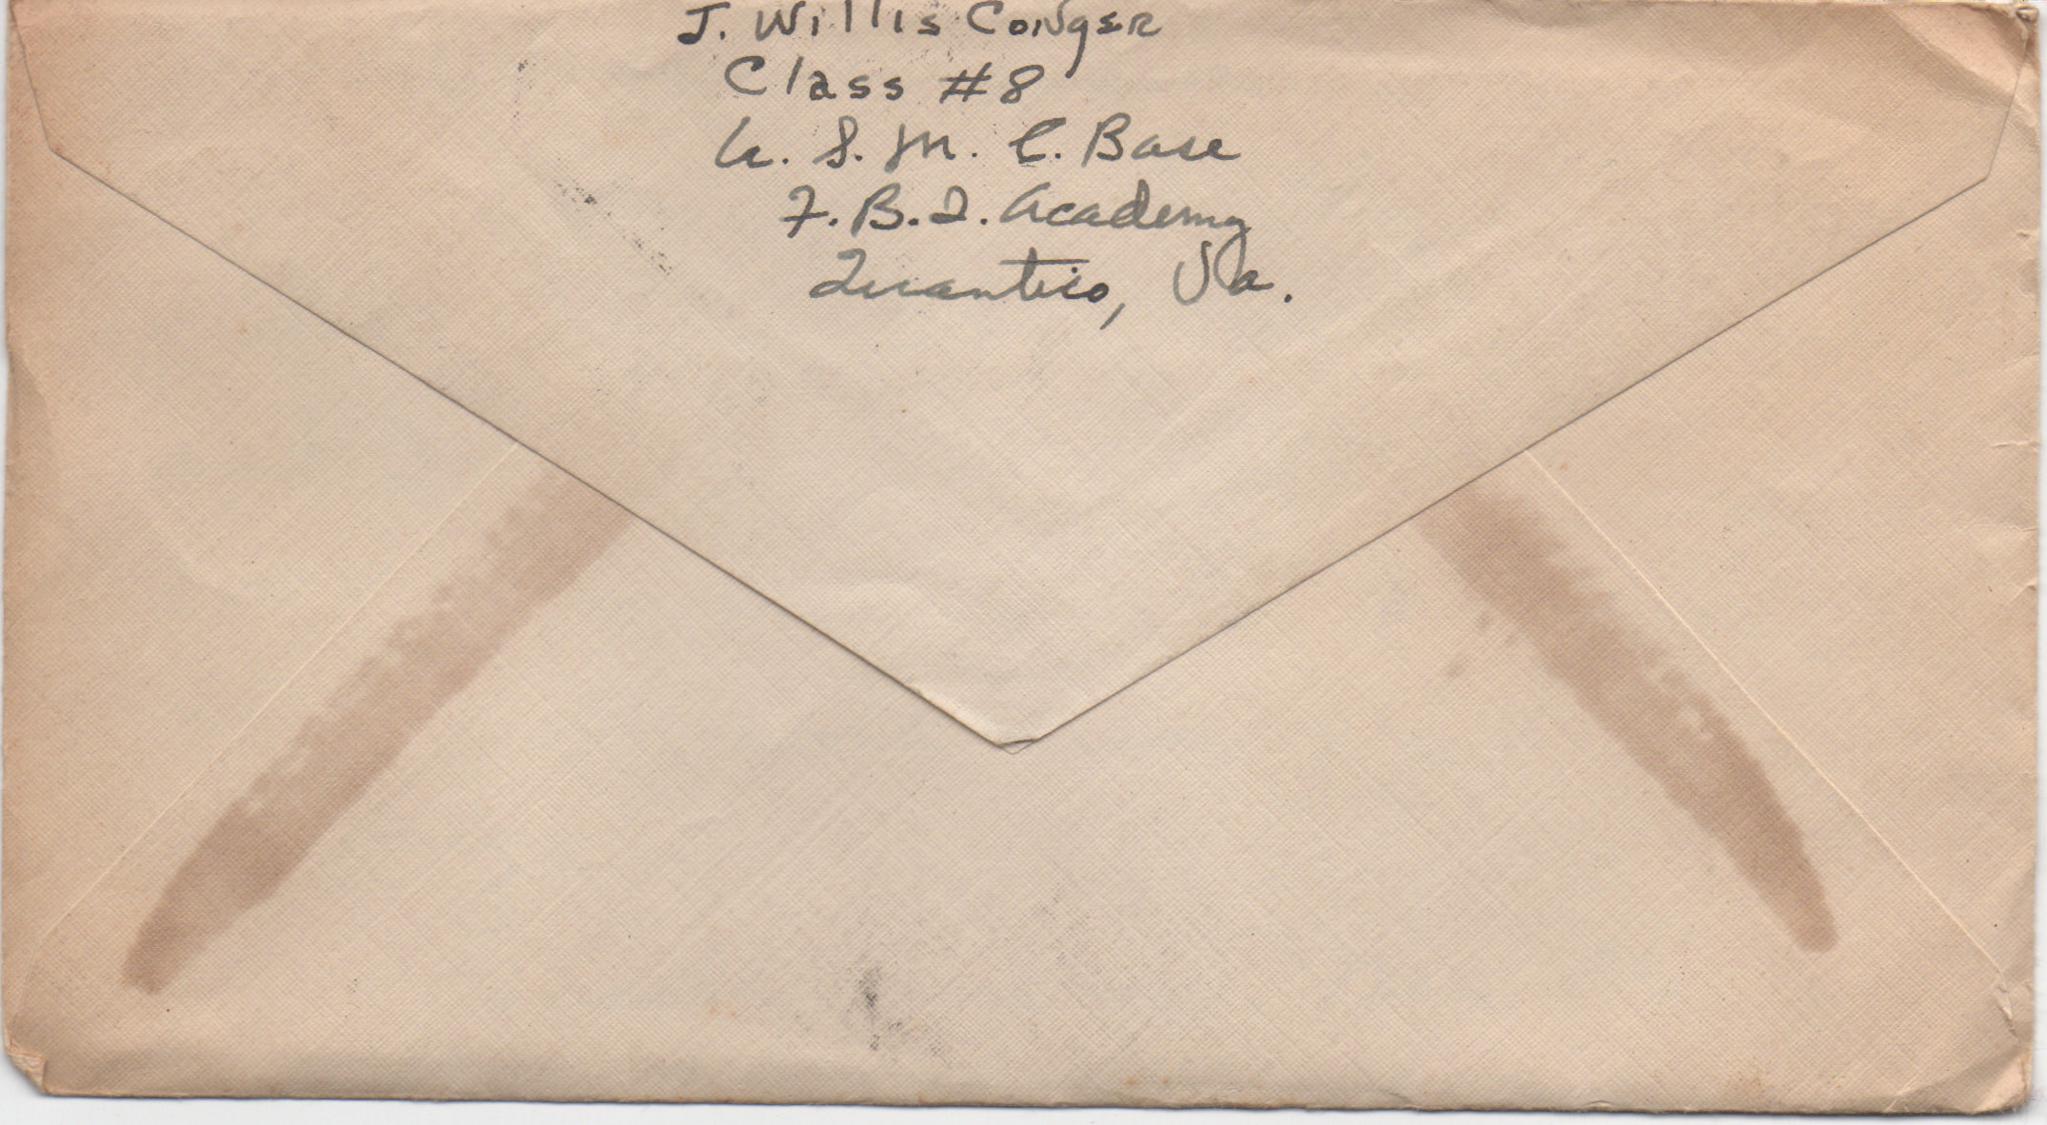 J. Willis Conger
Class #8
U. S. M. C. Base
F. B. I. Academy
Quantico, Va.